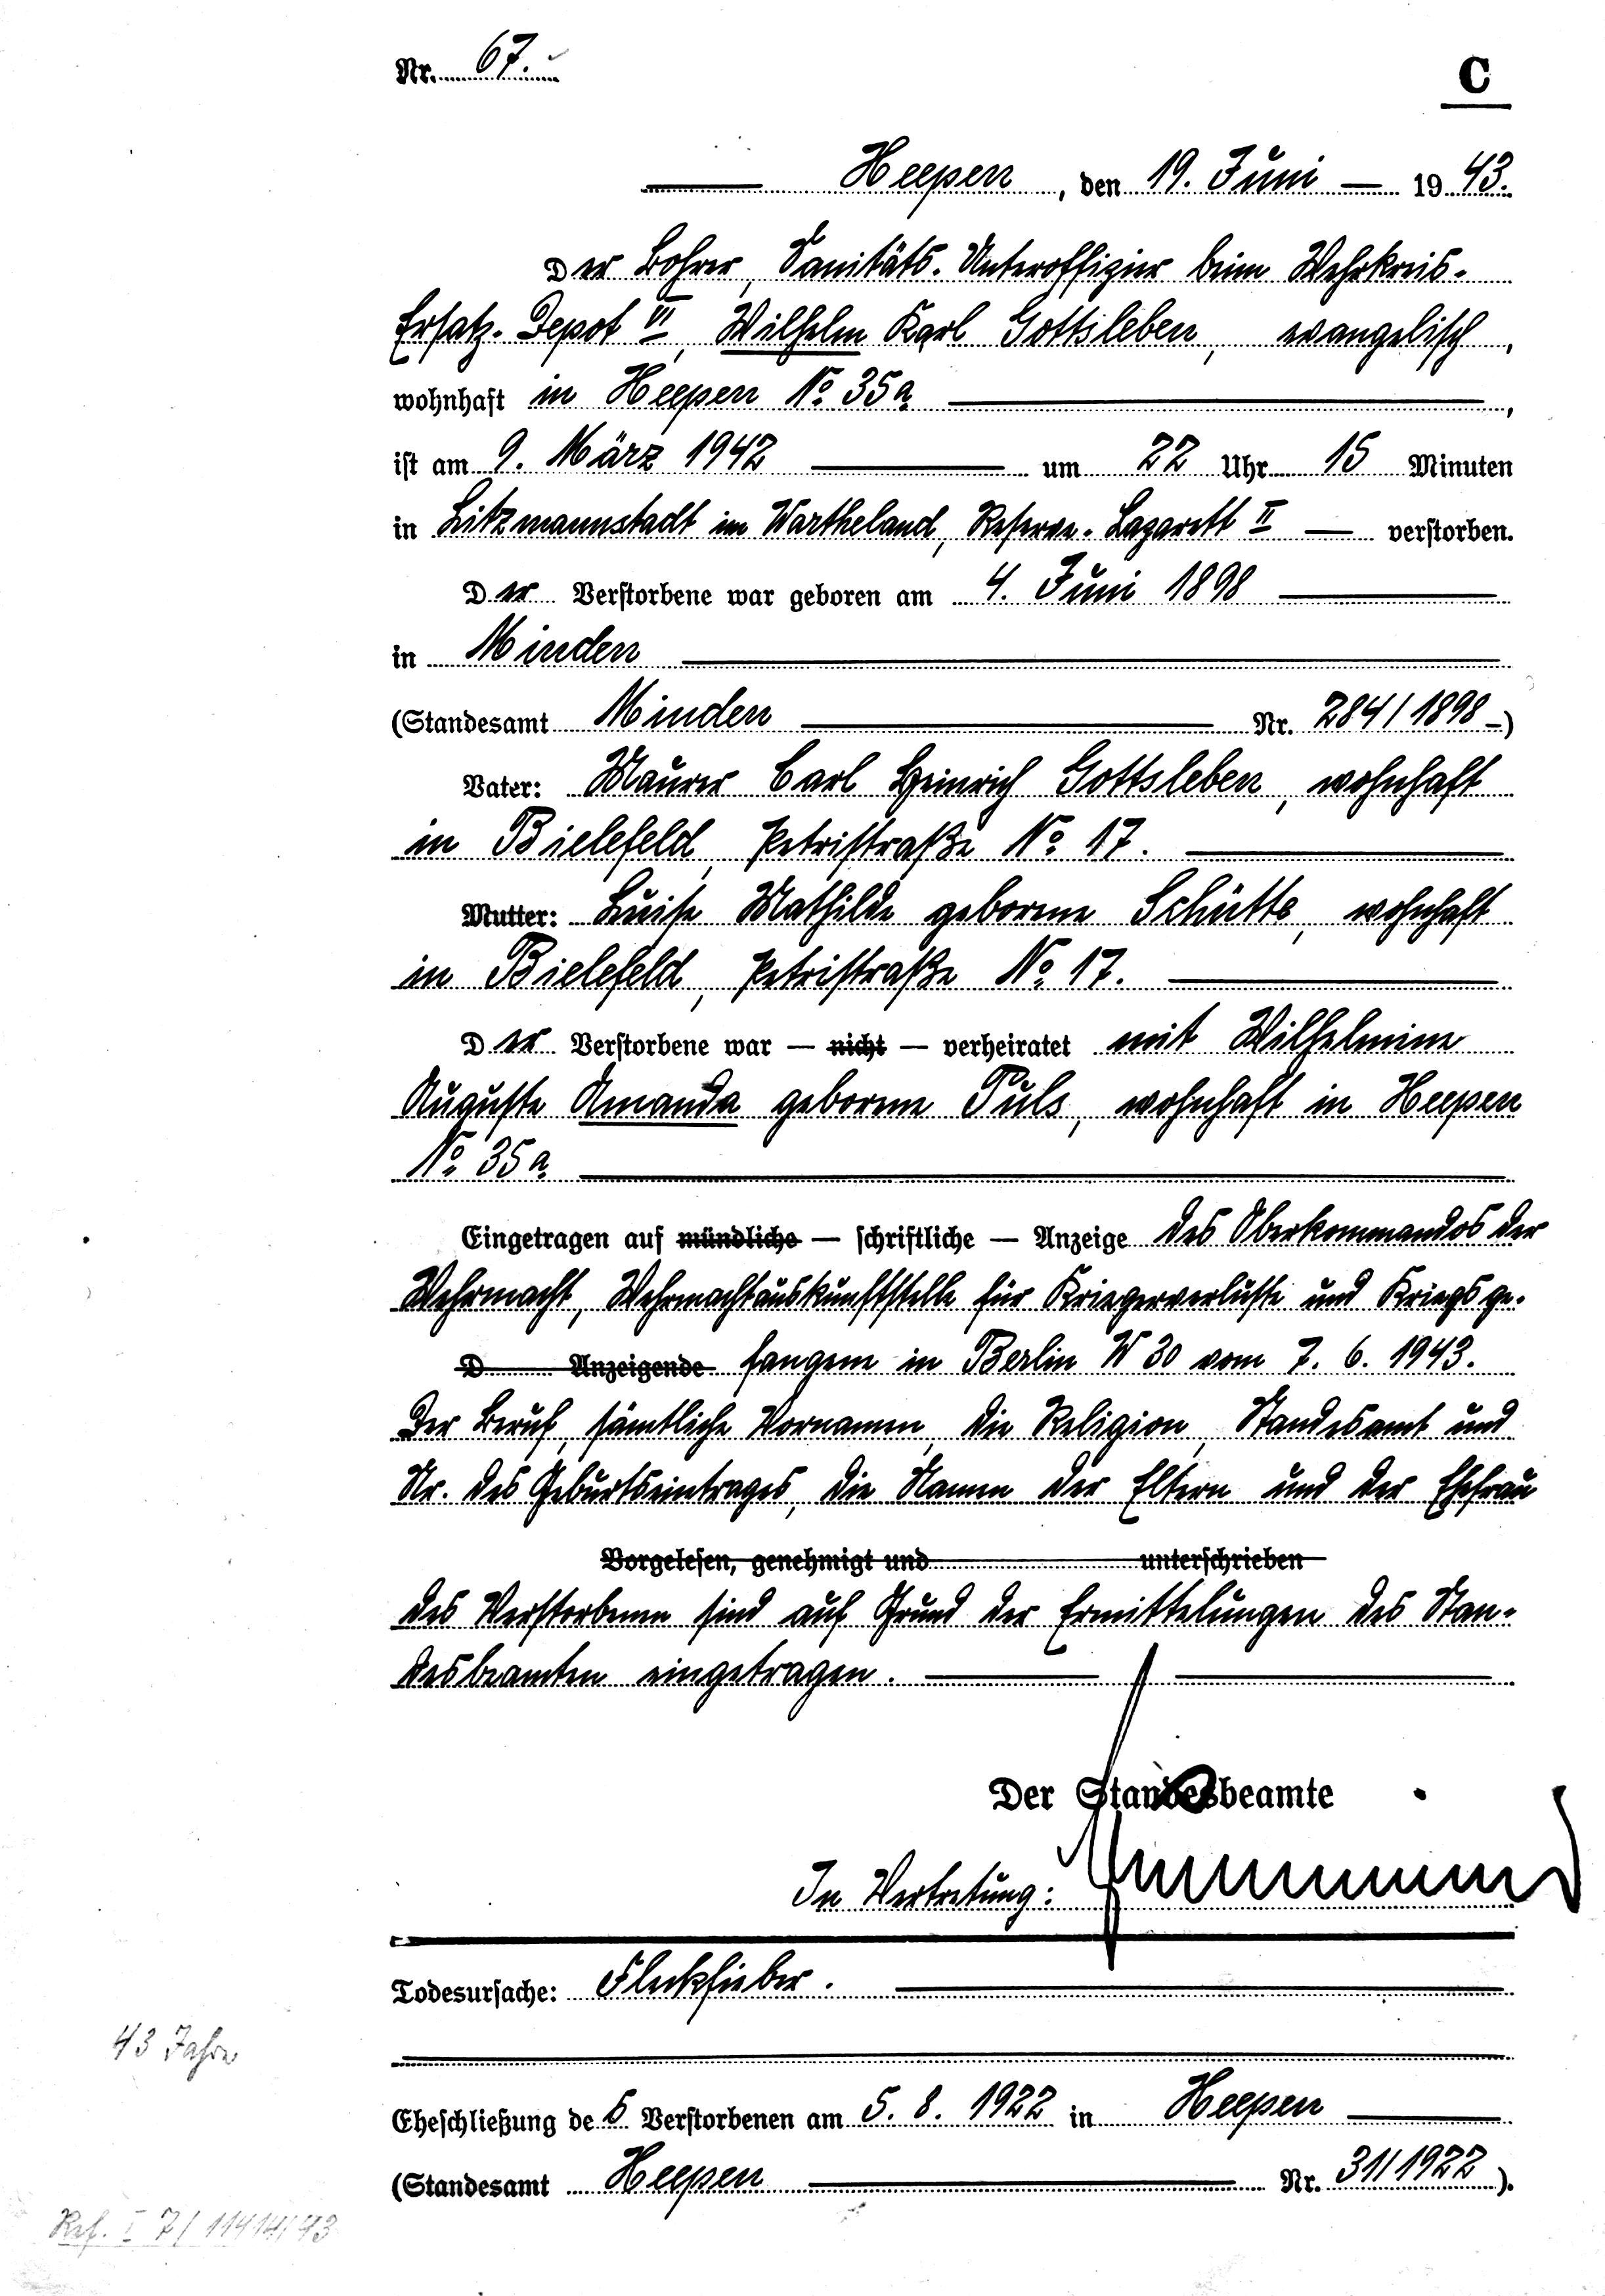 Nr. 67.
C
Heepen, den 19. Juni 1943.
Der Bohrer, Sanitäts-Unteroffizier beim Wehrkreis-
Ersatz-Depot VI, Wilhelm Karl Gottsleben, evangelisch,
wohnhaft in Heepen No. 35a,
ist am 9. März 1942 um 22 Uhr 15 Minuten
in Litzmannstadt im Wartheland, Reserve-Lazarett II — verstorben.
Der Verstorbene war geboren am 4. Juni 1898
in Minden
(Standesamt Minden Nr. 284/1898 -)
Vater: Maurer Carl Heinrich Gottsleben, wohnhaft
in Bielefeld, Petristraße No. 17.
Mutter: Luise Mathilde geborene Schütte, wohnhaft
in Bielefeld, Petristraße No. 17.
Der Verstorbene war — nicht — verheiratet mit Wilhelmine
Auguste Amanda geborene Puls, wohnhaft in Heepen
No. 35a
Eingetragen auf mündliche — schriftliche — Anzeige des Oberkommandos der
Wehrmacht, Wehrmachtauskunftstelle für Kriegerverluste und Kriegsge-
D Anzeigende fangene in Berlin W 30 vom 7. 6. 1943.
Der Beruf, sämtliche Vornamen, die Religion, Standesamt und
Nr. des Geburtseintrages, die Namen der Eltern und der Ehefrau
Vorgelesen, genehmigt und unterschrieben
des Verstorbenen sind auf Grund der Ermittelungen des Stan-
desbeamten eingetragen.
Der Standesbeamte
In Vertretung:
Todesursache: Fleckfieber.
43 Jahre
Eheschließung des Verstorbenen am 5. 8. 1922 in Heepen
(Standesamt Heepen Nr. 31/1922).
Ref. I 7/11414/43